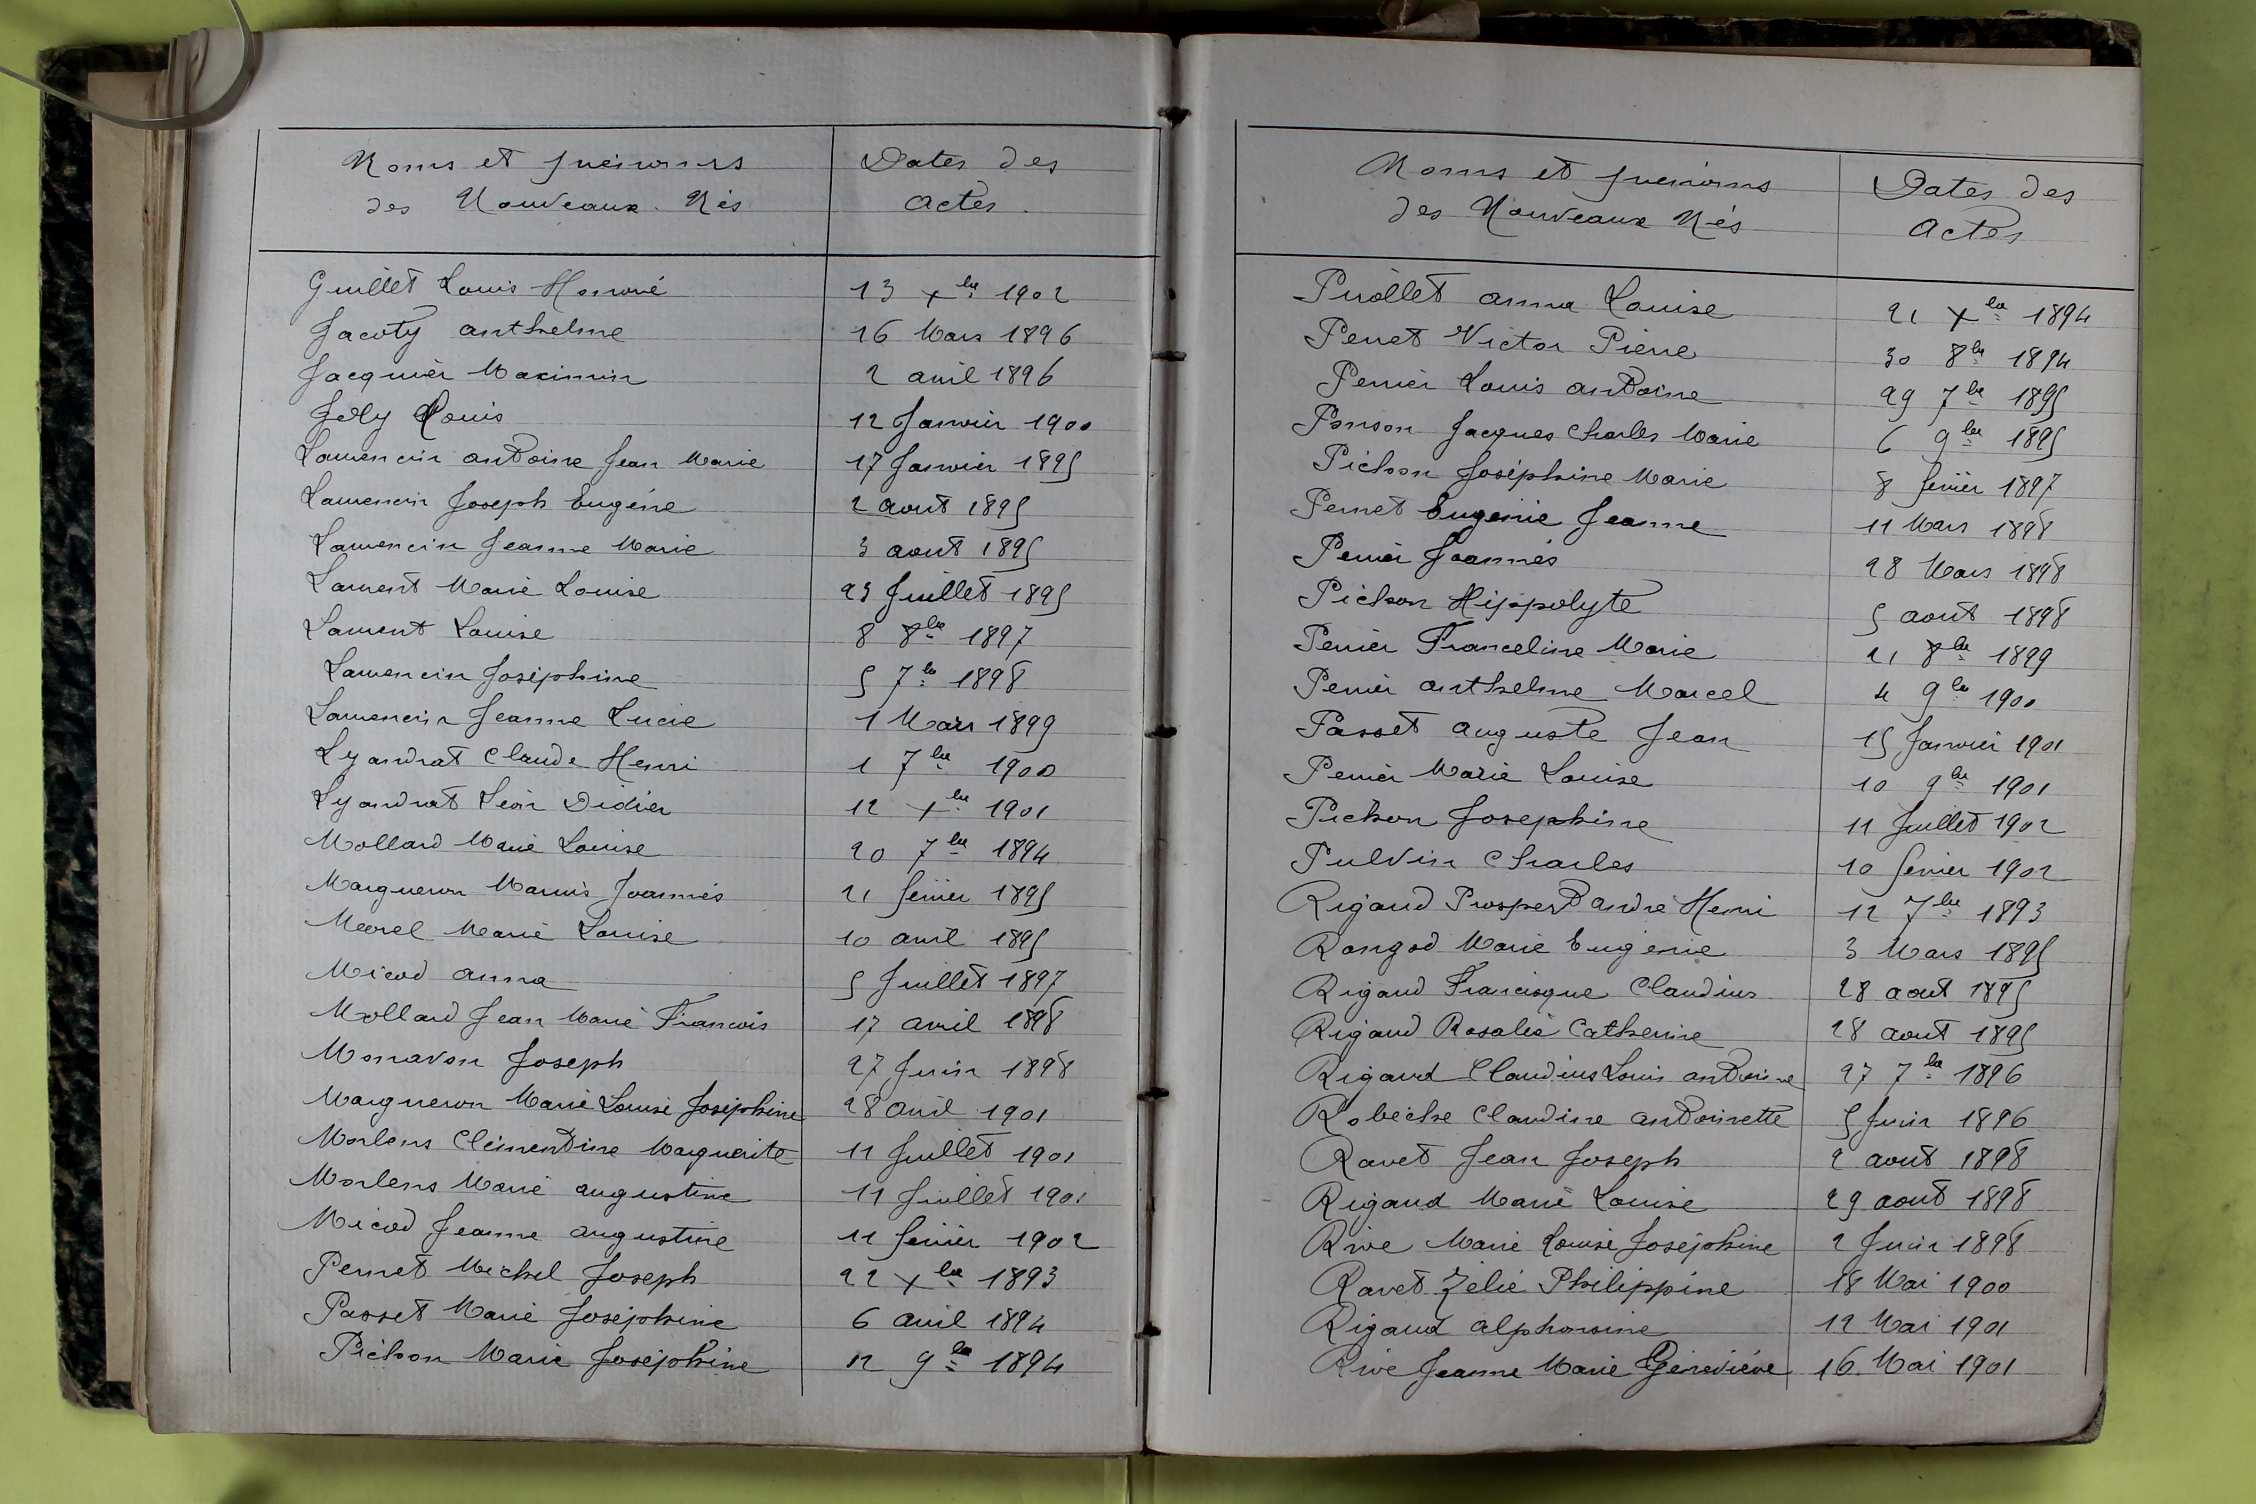 Noms et prénoms
des Nouveaux Nés
Dates des
actes
Guillet Louis Honoré 13 Xbre 1902
Jacoty anthelme 16 Mars 1896
Jacquier Maximin 2 avril 1896
Joly Louis 12 Janvier 1900
Lamencin antoine Jean Marie 17 Janvier 1895
Lamencin Joseph Eugène 2 aout 1895
Lamencin Jeanne Marie 3 aout 1895
Laurent Marie Louise 23 Juillet 1895
Laurent Louise 8 8bre 1897
Lamencin Joséphine 5 7bre 1898
Lamencin Jeanne Lucie 1 Mars 1899
Lyandrat Claude Henri 1 7bre 1900
Lyandrat Léon Didier 12 Xbre 1901
Mollard Marie Louise 20 7bre 1894
Maigneron Marius Joannés 21 février 1895
Morel Marie Louise 10 avril 1895
Micod anna 5 Juillet 1897
Mollard Jean Marie Francois 17 avril 1898
Monavon Joseph 27 Juin 1898
Maigneron Marie Louise Joséphine 28 avril 1901
Morlens Clémentine Marguerite 11 Juillet 1901
Morlens Marie augustine 11 Juillet 1901
Micod Jeanne augustine 11 février 1902
Perret Michel Joseph 22 Xbre 1893
Passet Marie Joséphine 6 avril 1894
Pichon Marie Joséphine 12 9bre 1894
Noms et prénoms
des Nouveaux Nés
Dates des
actes
Pirollet anna Louise 21 Xbre 1894
Perret Victor Pierre 30 8bre 1894
Perrier Louis antoine 29 7bre 1895
Ponson Jacques Charles Marie 6 9bre 1895
Pichon Joséphine Marie 8 février 1897
Perret Eugénie Jeanne 11 Mars 1898
Perrier Joannés 28 Mars 1898
Pichon Hippolyte 5 aout 1898
Perrier Franceline Marie 21 8bre 1899
Perrier anthelme Marcel 4 9bre 1900
Passet auguste Jean 15 Janvier 1901
Perrier Marie Louise 10 9bre 1901
Pichon Josephine 11 Juillet 1902
Pulvin Charles 10 février 1902
Rigaud Prosper andré Henri 12 7bre 1893
Rongod Marie Eugénie 3 Mars 1895
Rigaud Francisque Claudius 28 aout 1895
Rigaud Rosalie Catherine 28 aout 1895
Rigaud Claudius Louis antoine 27 7bre 1896
Robèche Claudine antoinette 5 Juin 1896
Ravet Jean Joseph 2 aout 1898
Rigaud Marie Louise 29 aout 1898
Rive Marie Louise Joséphine 2 Juin 1898
Ravet Zélie Philippine 18 Mai 1900
Rigaud alphonsine 12 Mai 1901
Rive Jeanne Marie Géneviève 16 Mai 1901